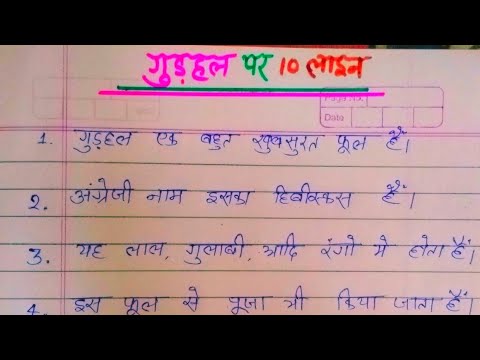 गुड़हल पर 10 लाइन
Page No.
Date
1. गुड़हल एक बहुत खुबसुरत फूल हैं।
2. अंग्रेजी नाम इसका हिबीस्कस हैं।
3. यह लाल, गुलाबी, आदि रंगो मे होता हैं।
4. इस फूल से पूजा भी किया जाता हैं।